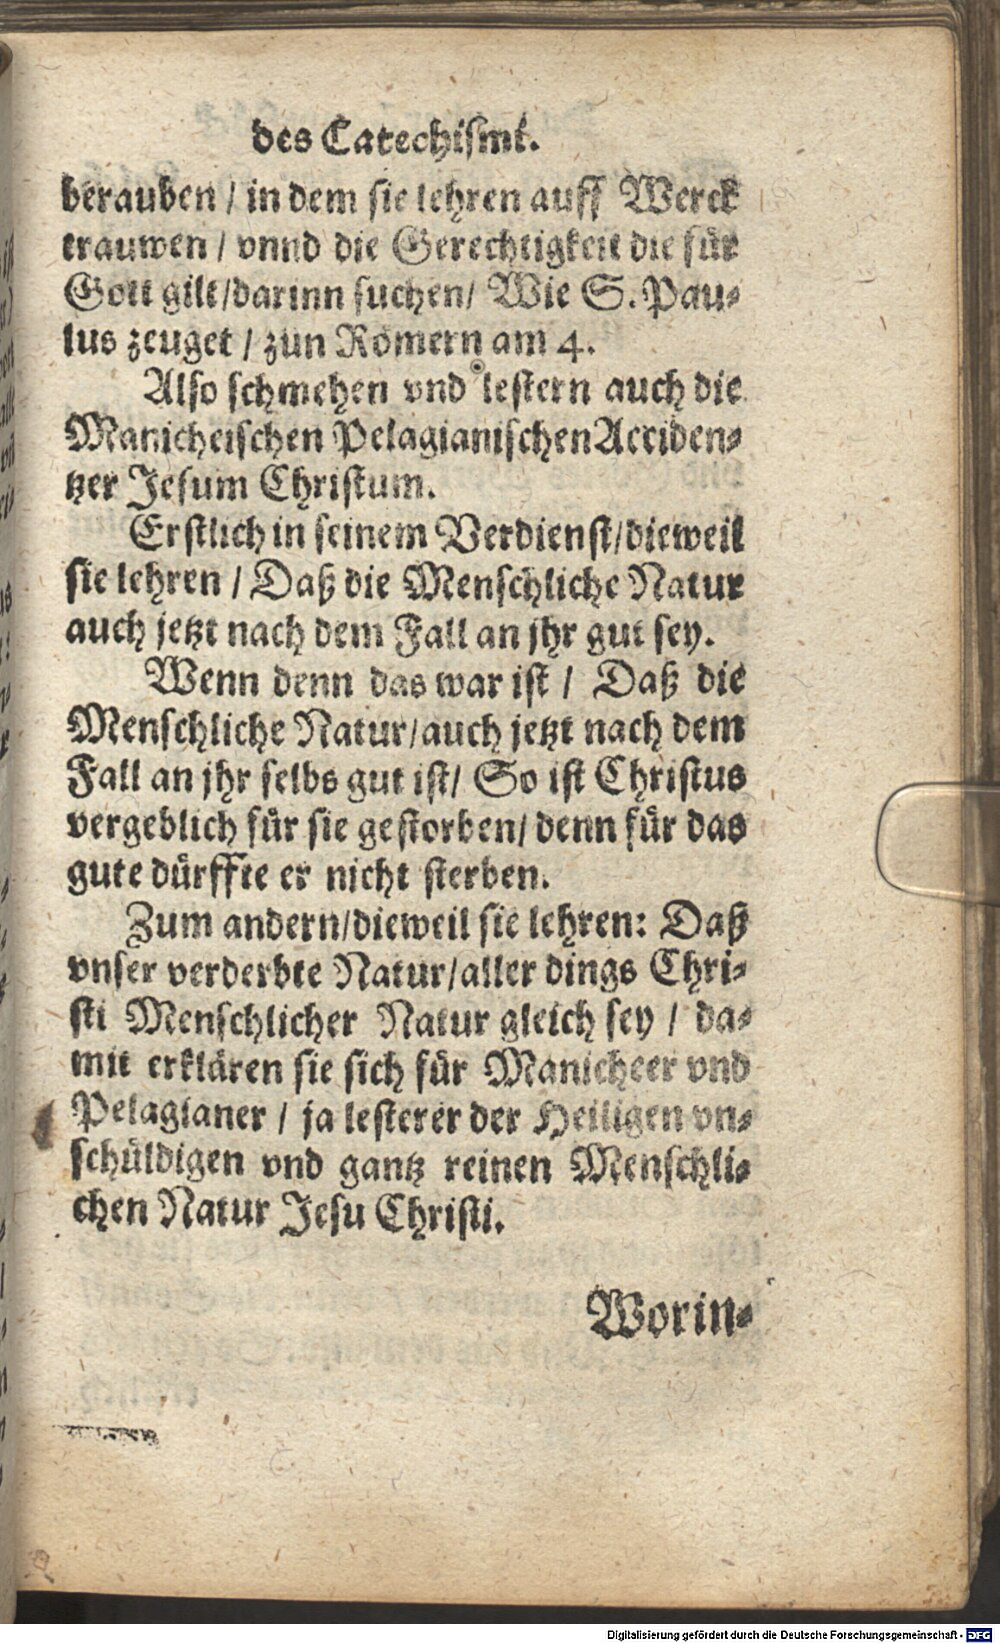 des Catechismi.
berauben / in dem sie lehren auff Werck
trauwen / vnnd die Gerechtigkeit die für
Gott gilt/darinn suchen/ Wie S. Pau-
lus zeuget / zun Römern am 4.
Also schmehen vnd lestern auch die
Manicheischen Pelagianischen Acciden-
tzer Jesum Christum.
Erstlich in seinem Verdienst/dieweil
sie lehren / Daß die Menschliche Natur
auch jetzt nach dem Fall an jhr gut sey.
Wenn denn das war ist / Daß die
Menschliche Natur/auch jetzt nach dem
Fall an jhr selbs gut ist/ So ist Christus
vergeblich für sie gestorben/ denn für das
gute dürffte er nicht sterben.
Zum andern/dieweil sie lehren: Daß
vnser verderbte Natur/aller dings Chri-
sti Menschlicher Natur gleich sey / da-
mit erklären sie sich für Manicheer vnd
Pelagianer / ja lesterer der Heiligen vn-
schüldigen vnd gantz reinen Menschli-
chen Natur Jesu Christi.
Worin-
Digitalisierung gefördert durch die Deutsche Forschungsgemeinschaft - DFG